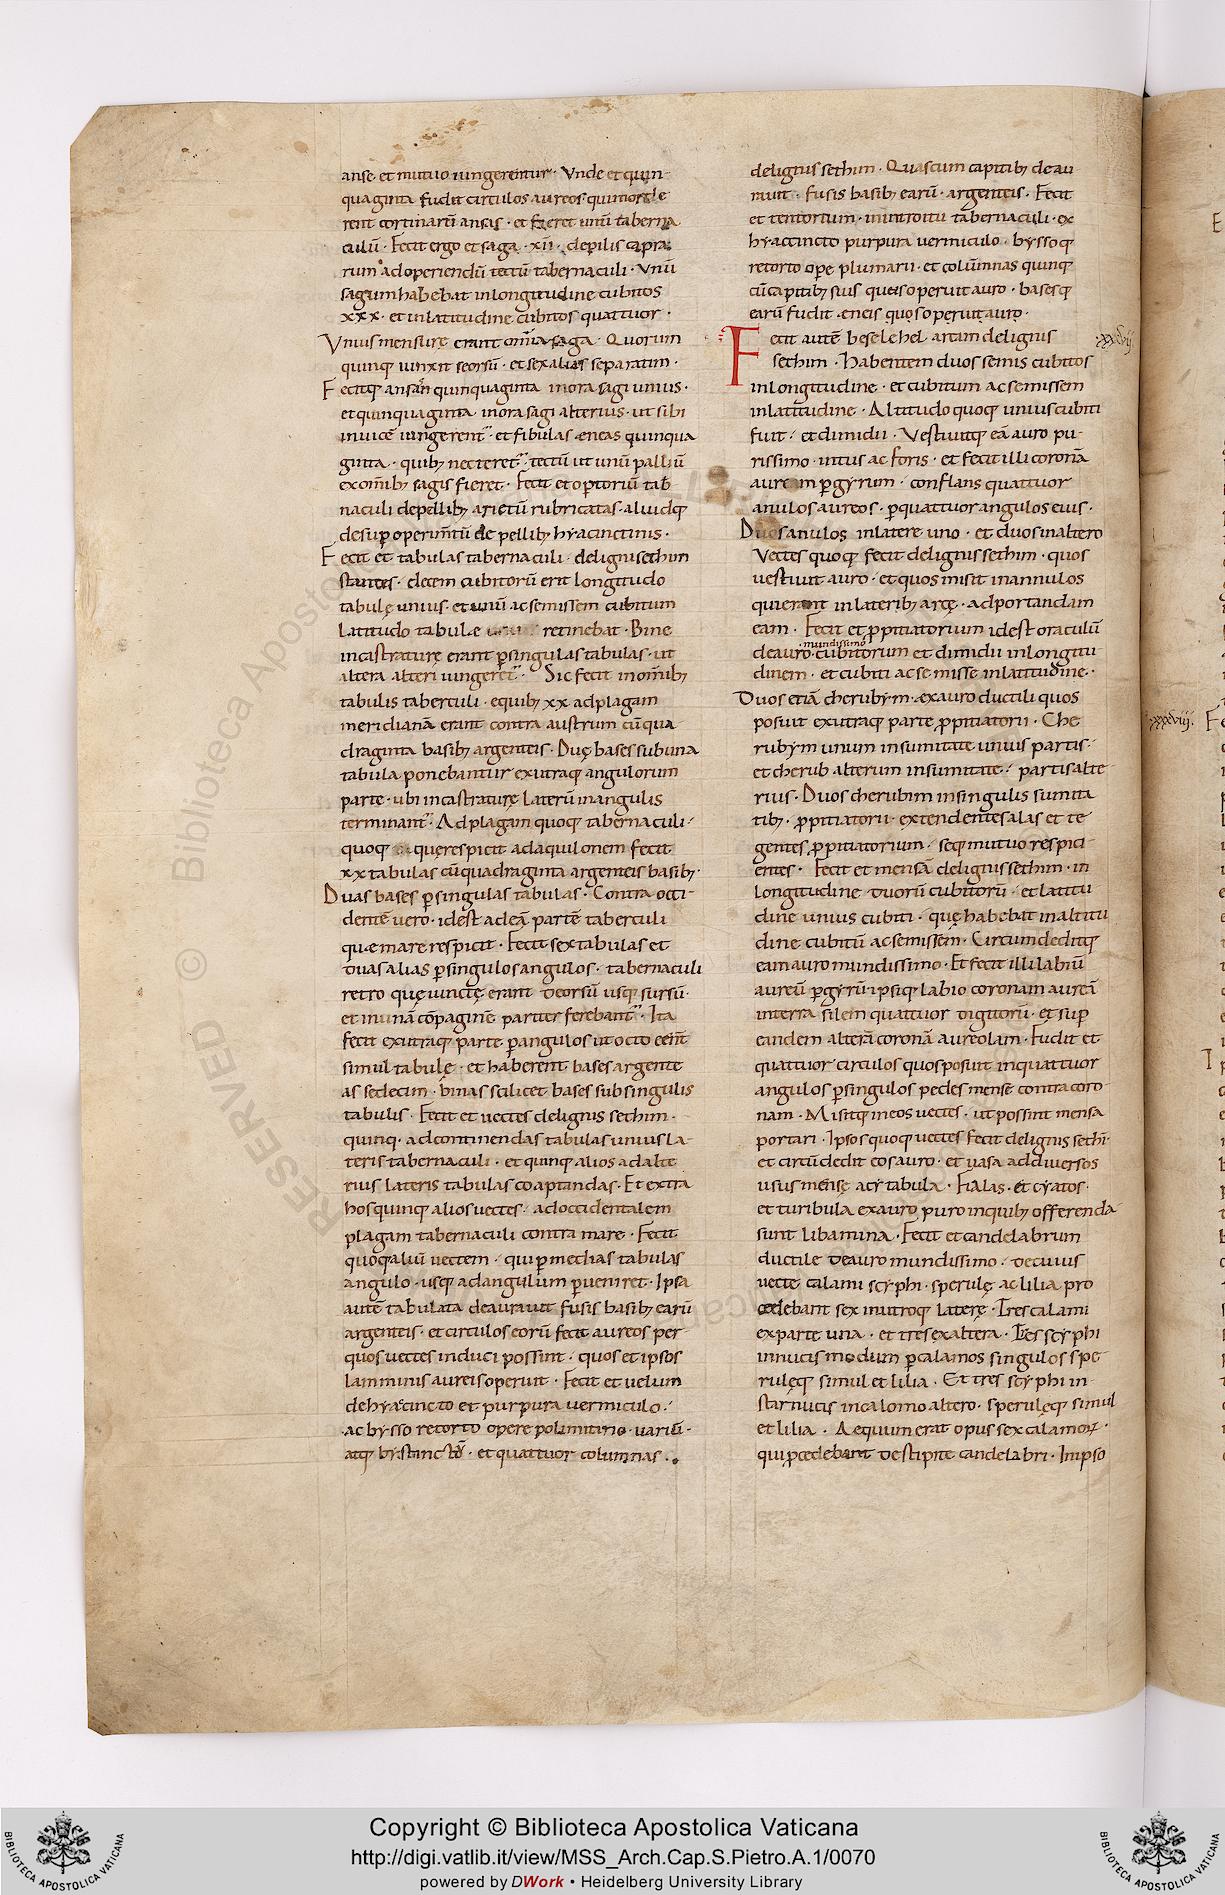 anse et mutuo iungerentur · Unde et quin-
quaginta fudit circulos aureos · qui morde
rent cortinarū ansas · et fieret unū taberna
culū · Fecit ergo et saga · xii · depilis capra
rum adoperiendū tectū tabernaculi · Unū
sagum habebat inlongitudine cubitos
xxx · et inlatitudine cubitos quattuor ·
Unius mensurę erant om̄ia saga · Quorum
quinq; iunxit seorsū · et sex alias separatim ·
Fecitq; ansas quinquaginta inora sagi unius ·
et quinquaginta inora sagi alterius · ut sibi
inuicē iungerent · et fibulas eneas quinqua
ginta · quib; necteret · tectū ut unū palliū
exom̄ib; sagis fieret · Fecit et optoriū tab
naculi depellib; arietū rubricatas · aliudq;
desup operim̄tū de pellib; hyacinctinis ·
Fecit et tabulas tabernaculi · delignisethim
stantes · decem cubitorū erit longitudo
tabulę unius · et unū acsemissem cubitum
latitudo tabulæ retinebat · Bine
incastraturę erant p singulas tabulas · ut
altera alteri iungeret · Sic fecit inom̄ib;
tabulis taberculi · equib; xx adplagam
meridianā erant contra austrum cūqua
draginta basib; argenteis · Duę bases subuna
tabula ponebantur exutraq; angulorum
parte · ubi incastraturę laterū inangulis
terminant · Adplagam quoq; tabernaculi ·
quoq; quęrespicit adaquilonem fecit
xx tabulas cūquadraginta argenteis basib; ·
Duas bases p singulas tabulas · Contra occi-
dentē vero · idest adeā partē taberculi
quæ mare respicit · Fecit sex tabulas et
duas alias p singulos angulos · tabernaculi
retro quę iunctę erant deorsū usq; sursū ·
et inunā cōpaginē pariter ferebant · Ita
fecit exutraq; parte p angulos ut octo eent
simul tabulę · et haberent bases argente
as sedecim · binas scilicet bases subsingulis
tabulis · Fecit et uectes delignis sethim ·
quinq; · adcontinendas tabulas unius la-
teris tabernaculi · et quinq; alios adalte
rius lateris tabulas coaptandas · Et extra
hos quinq; alios uectes · adoccidentalem
plagam tabernaculi contra mare · Fecit
quoq; aliū uectem · qui p medias tabulas
angulo · usq; adangulum pueniret · Ipsa
autē tabulata deaurauit fusis basib; earū
argenteis · et circulos eorū fecit aureos per
quos uectes induci possint · quos et ipsos
lamminis aureis operuit · Fecit et uelum
dehyacincto et purpura uermiculo ·
ac bysso retorto opere polimitario · uariū ·
atq; bystinctō · et quattuor columnas ·
delignis sethim · Quas cum capitib; deau
rauit · fusis basib; earū · argenteis · Fecit
et tentorium · inintroitu tabernaculi · ex
hyaccincto purpura uermiculo · byssoq;
retorto ope plumarii · et columnas quinq;
cū capitib; suis quas operuit auro · basesq;
earū fudit · eneis quos operuit auro ·
Fecit autē beselehel arcam delignis
sethim · Habentem duos semis cubitos
inlongitudine · et cubitum ac semissem
inlatitudine · Altitudo quoq; unius cubiti
fuit · et dimidii · Vestiuitq; eā auro pu-
rissimo · intus ac foris · et fecit illi coronā
auream p gyrum · conflans quattuor
anulos aureos · p quattuor angulos eius ·
Duos anulos inlatere uno · et duos inaltero
Vectes quoq; fecit delignis sethim · quos
uestiuit auro · et quos misit inannulos
qui erant inlaterib; arcę · adportandam
eam · Fecit et ppitiatorium idest oraculū
deauro · mundissimo · cubitorum et dimidii inlongitu
dinem · et cubiti ac se misse inlatitudine ·
Duos etiā cherubym · exauro ductili quos
posuit exutraq; parte ppitiatorii · Che
rubym unum insumitate unius partis ·
et cherub alterum insumitate · partis alte
rius · Duos cherubim insingulis sumita
tib; · ppitiatorii · extendentes alas et te
gentes ppitiatorium · seq; mutuo respici
entes · Fecit et mensā delignis sethim · in
longitudine duorū cubitorū · et latitu
dine unius cubiti · quę habebat inaltitu
dine cubitū ac semissem · Circumdeditq;
eam auro mundissimo · Et fecit illi labiū
aureū p gyrū · ipsiq; labio coronam aureā
interra silem quattuor digitorū · et sup
eandem alterā coronā aureolam · Fudit et
quattuor circulos quos posuit inquattuor
angulos p singulos pedes mense contra coro
nam · Misitq; ineos uectes · ut possint mensa
portari · Ipsos quoq; uectes fecit delignis sethī ·
et circūdedit eos auro · et uasa addiuersos
usus mensę acy tabula · Fialas · et cyatos ·
et turibula exauro puro inquib; offerenda
sunt libamina · Fecit et candelabrum
ductile deauro mundissimo · decuius
uecte calami scyphi · sperulę ac lilia pro
cedebant sex inutroq; laterę · Tres calami
exparte una · et tres exaltera · Tres scyphi
innucis modum p calamos singulos spe
rulęq; simul et lilia · Et tres scyphi in-
starnucis incalomo altero · sperulęq; simul
et lilia · Aequum erat opus sex calamoꝝ ·
qui pcedebant destipite candelabri · Inipso
xxxvii
xxxviii ·
Copyright © Biblioteca Apostolica Vaticana
http://digi.vatlib.it/view/MSS_Arch.Cap.S.Pietro.A.1/0070
powered by DWork • Heidelberg University Library
BIBLIOTECA APOSTOLICA VATICANA
BIBLIOTECA APOSTOLICA VATICANA